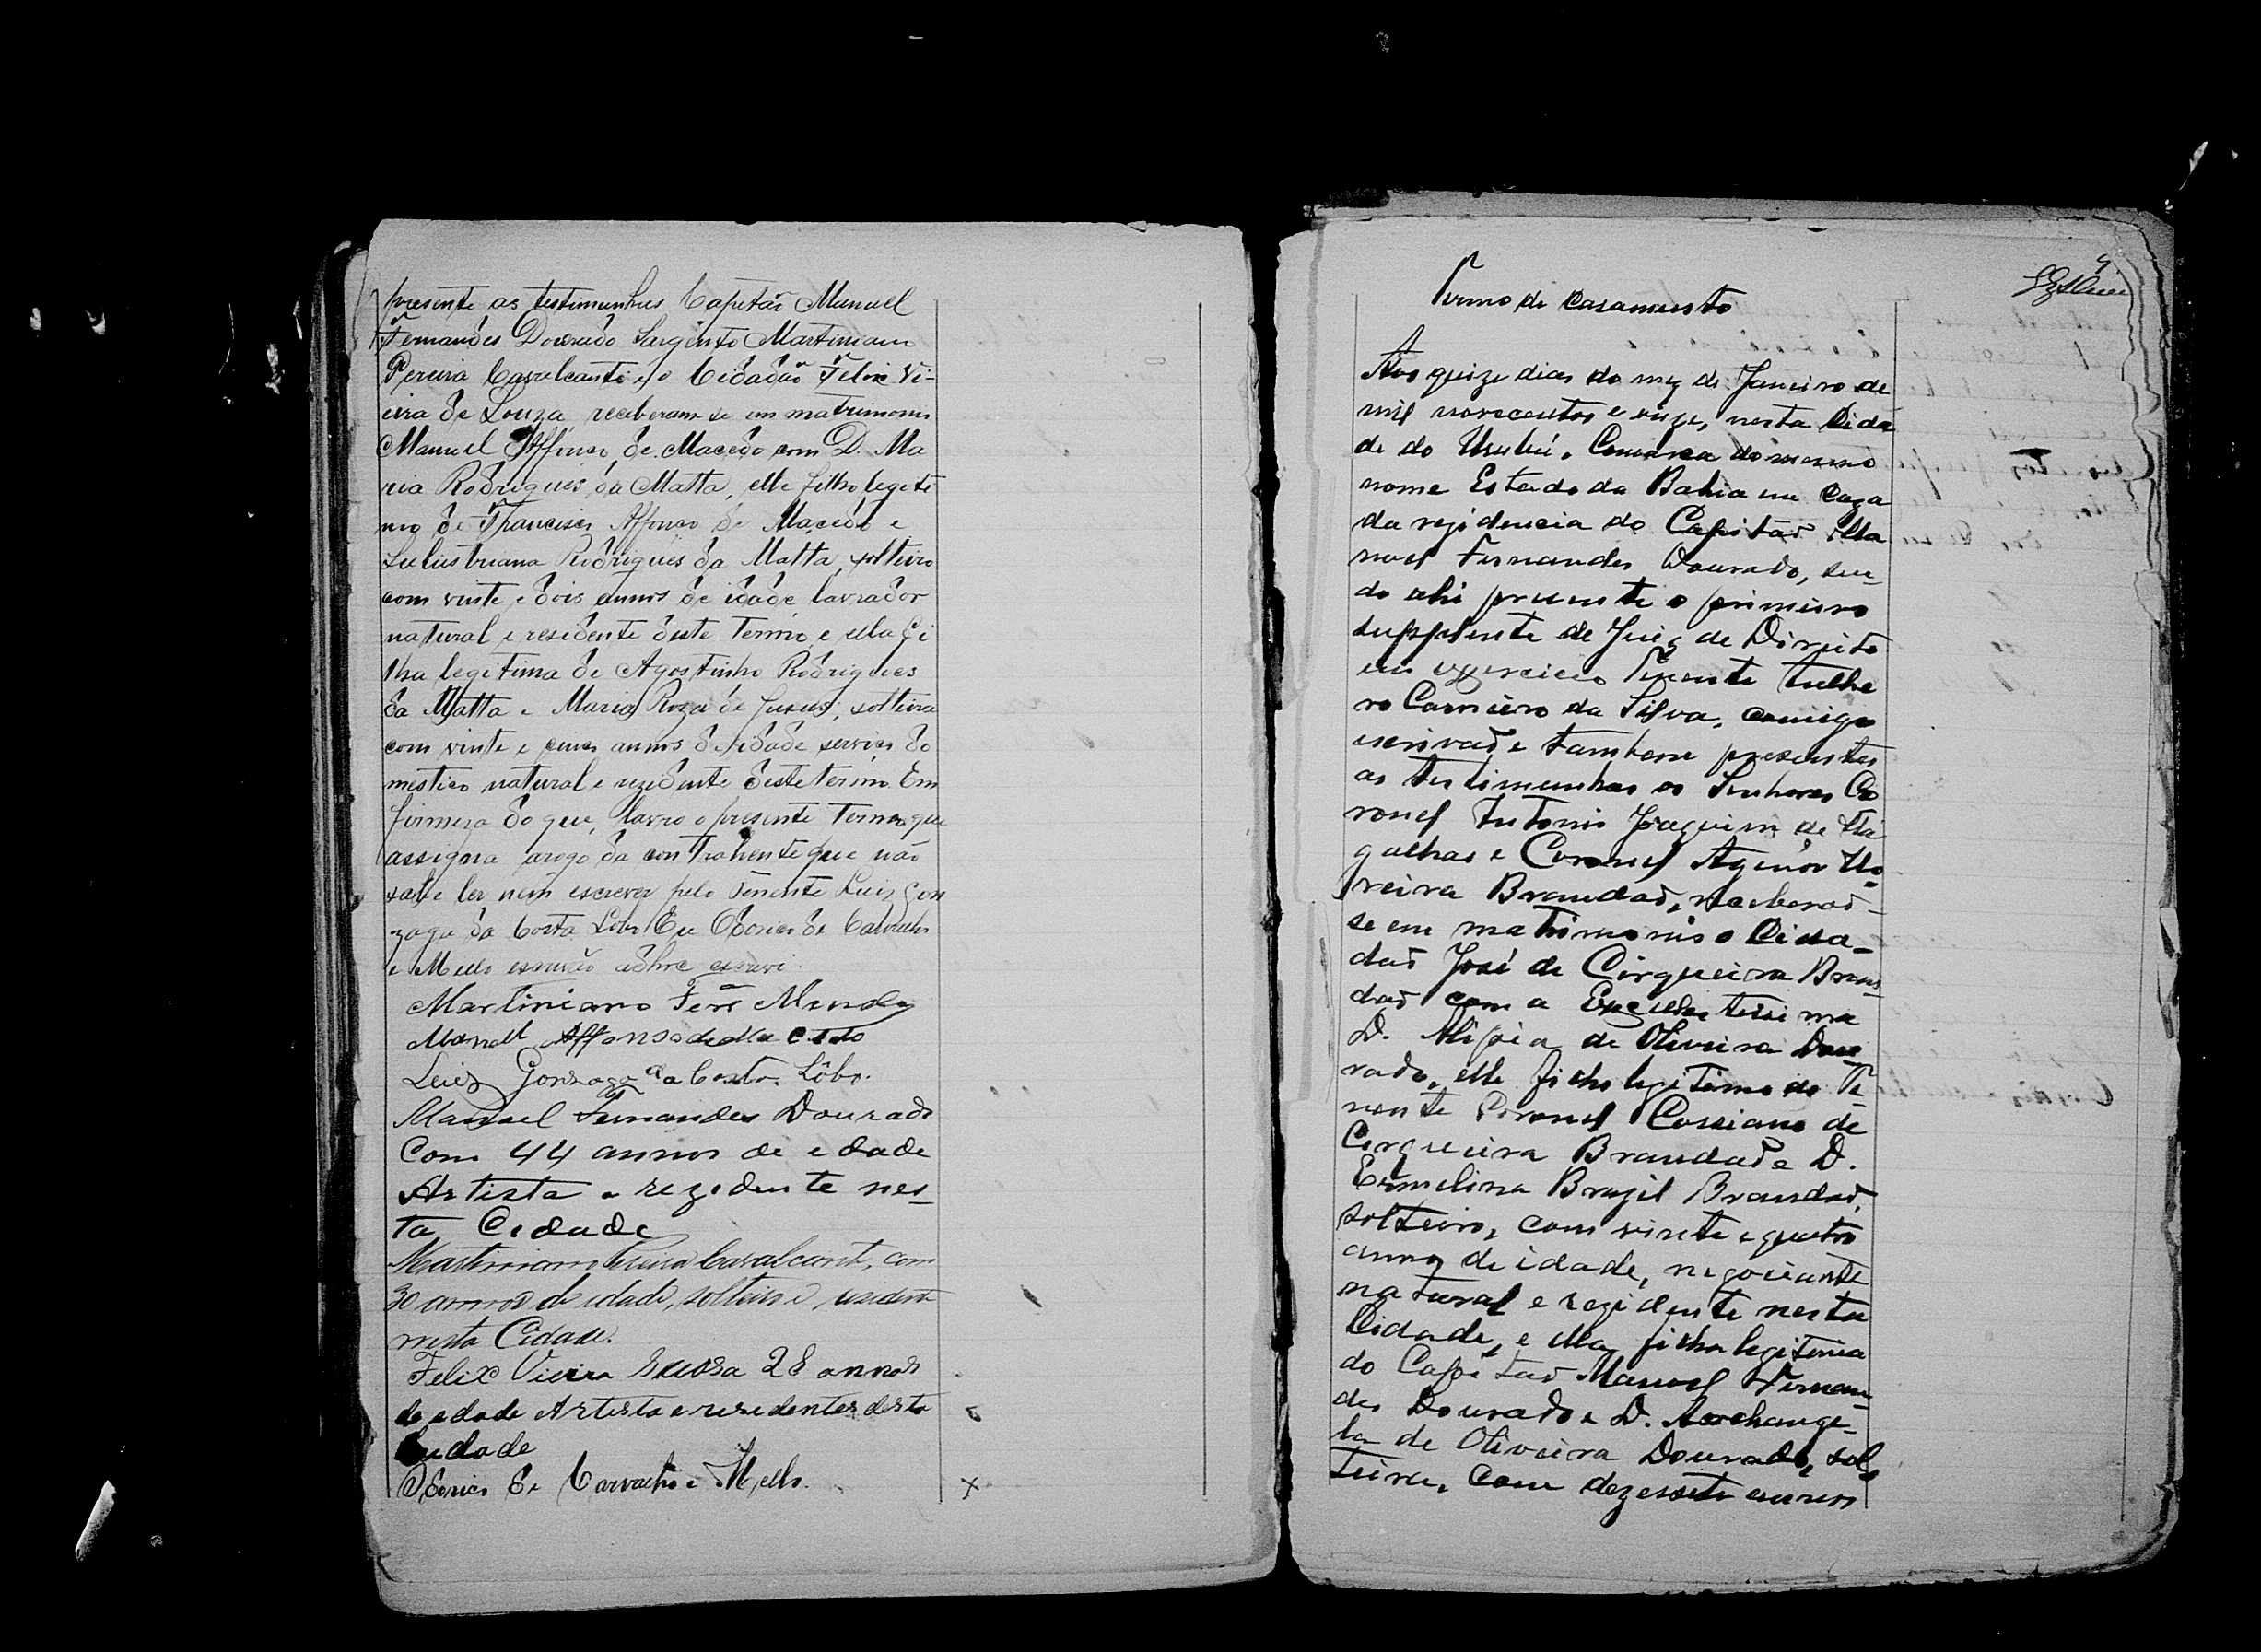 presente as testimunhas Capitão Manuel
Fernandes Dourado Sargento Martiniano
Pereira Cavalcanti e o Cidadão Felix Vi-
eira de Souza receberam se em matrimonio
Manuel Affonso de Macedo com D. Ma
ria Rodrigues da Matta, elle filho legiti
mo de Francisco Affonso de Macedo e
Rodrigues da Matta, solteiro
com vinte e dois annos de idade lavrador
natural e residente deste Termo, e ella fi
lha legitima de Agostinho Rodrigues
da Matta e Maria Roza de Jesus, solteira
com vinte e annos de idade serviço do
mestico natural e rezidente deste termo. Em
firmeza do que, lavro o presente Termo que
assigna arogo da contrahente que não
sabe ler nem escrever pelo Tenente Luiz Gon
zaga da Costa Lobo Eu Odorico de Carvalho
e Mello escrivão escrevi.
Martiniano Ferr.ª Mendes
Manoel Affonso de Macedo
Luiz Gonzaga da Costa Lôbo.
Manoel Fernandes Dourado
Com 44 annos de edade
Artista e rezidente nes-
ta Cidade
Martiniano Pereira Cavalcant, com
30 annos de idade, solteiro e rezidente
nesta Cidade.
Felix Vieira Souza 28 annos
de edade Artista e residentes desta
Cidade
Odorico de Carvalho e Mello.
Termo de Casamento
Aos quize dias do mez de Janeiro de
mil novecentos e onze, nesta Cida
de do Urubú, Comarca do mesmo
nome Estado da Bahia em caza
da rezidencia do Capitão Ma
noel Fernandes Dourado, sen-
do ahi presente o primeiro
supplente de Juiz de Direito
em exercicio Tenente
ro Carneiro da Silva, comigo
escrivão e tambem presentes
as testimunhas os Senhores Co
ronel Antonio Joaquim de Ma
galhas e Coronel Agenôr Mo-
reira Brandão, receberaõ-
se em matrimonio o Cida-
daõ José de Cirqueira Bran-
daõ com a Excellentissima
D. Alipia de Oliveira Dou
rado, elle filho legitimo do Te
nente Coronel Cassiano de
Cerqueira Brandaõ e D.
Ermelina Brazil Brandaõ,
solteiro, com vinte e quatro
annos de idade, negociante
natural e rezidente nesta
Cidade, e ella filha legitima
do Capitaõ Manoel Fernan-
des Dourado e D. Archange-
la de Oliveira Dourado, sol-
teira, com dezessete annos